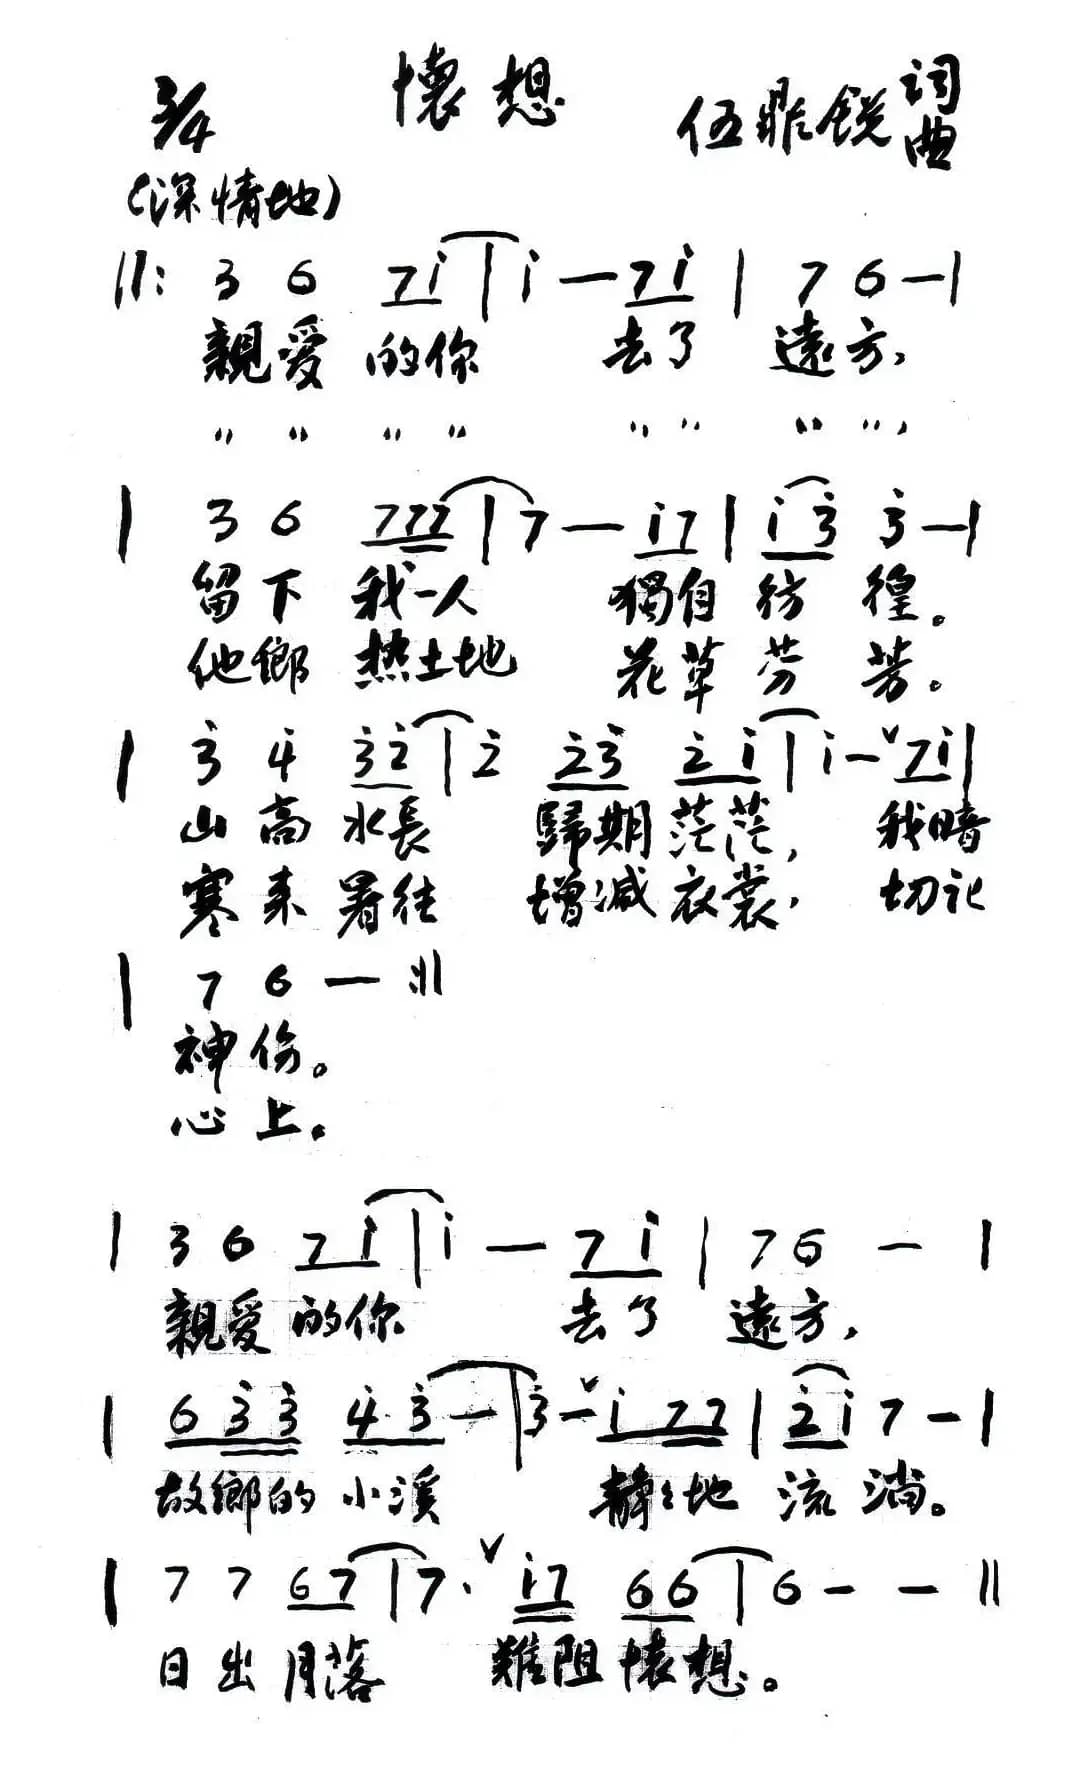 懷想
3/4
伍鼎銳 詞曲
(深情地)
||: 3 6 7i | i — 7i | 7 6 — |
親愛的你 去了遠方，
〃 〃 〃 〃 〃 〃 〃 〃，
| 3 6 777 | 7 — i7 | i3 3 — |
留下我一人 獨自彷徨。
他鄉熱土地 花草芬芳。
| 3 4 32 | 2 23 2i | i — ˅ 7i |
山高水長 歸期茫茫， 我暗
寒来暑往 增減衣裳， 切記
| 7 6 — :||
神傷。
心上。
| 3 6 7i | i — 7i | 7 6 — |
親愛的你 去了遠方，
| 633 43 — | 3 — ˅ i77 | 2i 7 — |
故鄉的小溪 静々地流淌。
| 7 7 67 | 7· ˅ i7 66 | 6 — — ||
日出月落 難阻懷想。